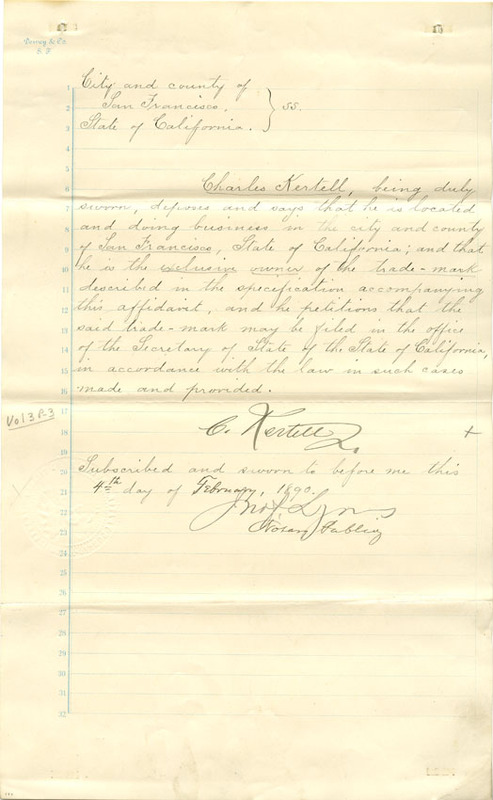 Dewey & Co.
S. F.
1 City and county of
2 San Francisco. } ss.
3 State of California.
4
5
6 Charles Kertell, being duly
7 sworn, deposes and says that he is located
8 and doing business in the city and county
9 of San Francisco, State of California; and that
10 he is the exclusive owner of the trade-mark
11 described in the specification accompanying
12 this affidavit, and he petitions that the
13 said trade-mark may be filed in the office
14 of the Secretary of State of the State of California,
15 in accordance with the law in such cases
16 made and provided.
17
Vol 3 P-3
18 C. Kertell +
19
20 Subscribed and sworn to before me this
21 4th day of February, 1890.
22 Lyons
23 Notary Public
24
25
26
27
28
29
30
31
32